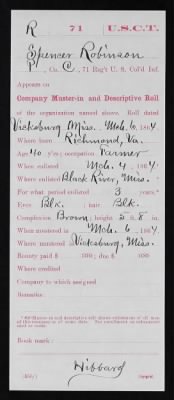 R 71 U.S.C.T.
Spencer Robinson
P., Co. C, 71 Reg't U. S. Col'd Inf.
Appears on
Company Muster-in and Descriptive Roll
of the organization named above. Roll dated
Vicksburg Miss. Mch. 6, 1864
Where born Richmond, Va.
Age 40 y'rs; occupation Farmer
When enlisted Mch. 4, 1864.
Where enlisted Black River, Miss.
For what period enlisted 3 years.
Eyes Blk. ; hair Blk.
Complexion Brown; height 5 ft. 8 in.
When mustered in Mch. 6, 1864.
Where mustered in Vicksburg, Miss.
Bounty paid $ 100; due $ 100
Where credited
Company to which assigned
Remarks:
Book mark:
Hibbard
Copyist.